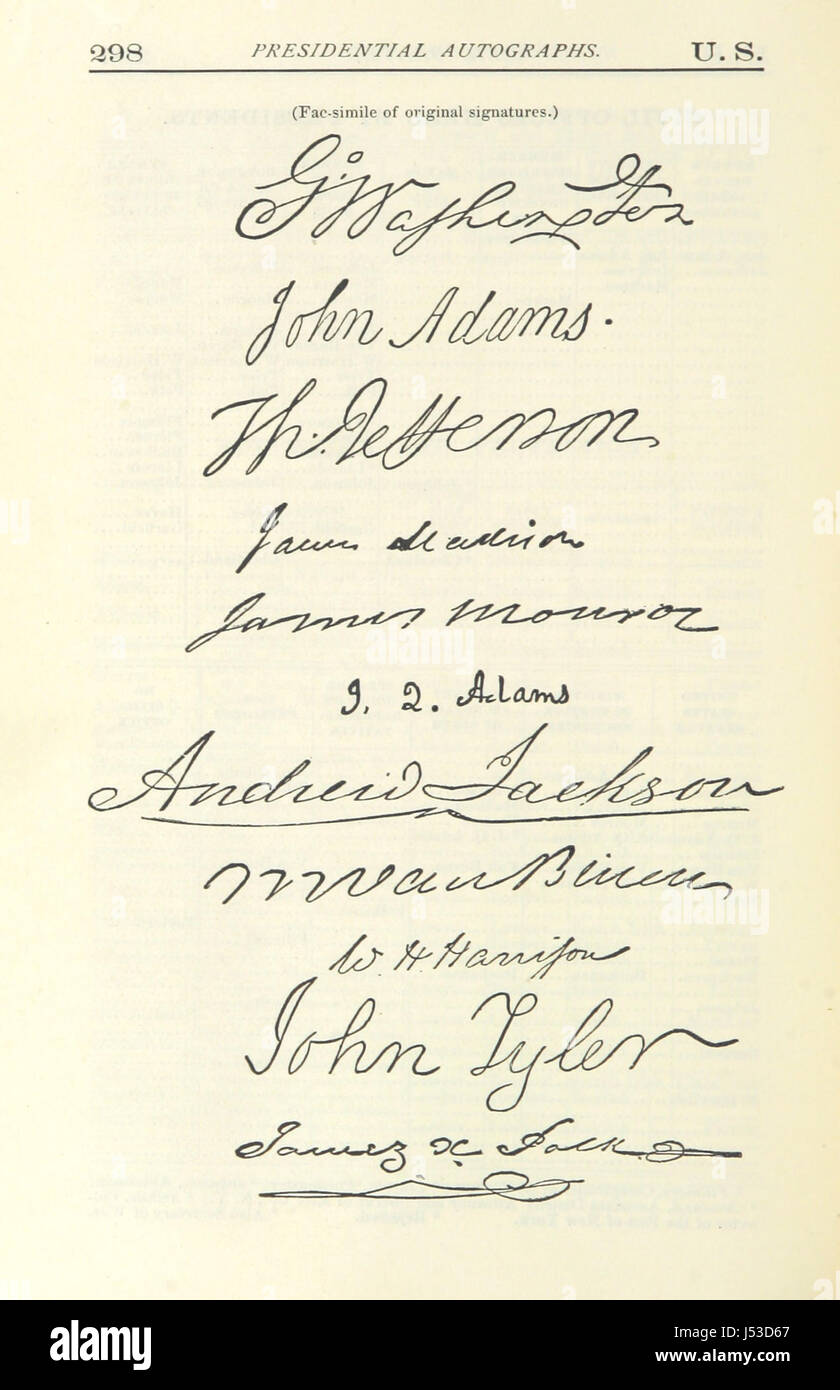 298 PRESIDENTIAL AUTOGRAPHS. U. S.
(Fac-simile of original signatures.)
Go. Washington
John Adams.
Th. Jefferson
James Madison
James Monroe
J. Q. Adams
Andrew Jackson
M Van Buren
W. H. Harrison
John Tyler
James K. Polk
alamy
alamy
Image ID: J53D67
www.alamy.com